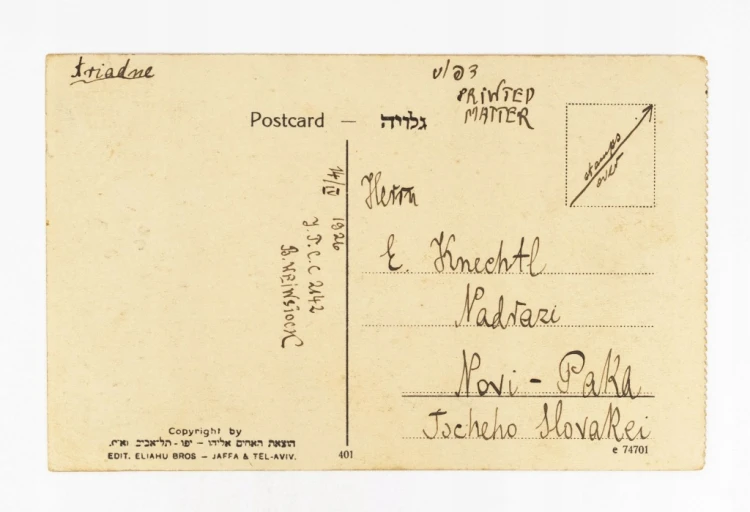 Ariadne
PRINTED
MATTER
Postcard — גלויה
stamps
over
14/IV 1926
J.P.C.C 2142
B. WEINSTOCK
Herrn
E. Knechtl
Nadrazi
Novi - Paka
Tscheho Slovakei
Copyright by
הוצאת האחים אליהו – יפו - תל־אביב
EDIT. ELIAHU BROS – JAFFA & TEL-AVIV.
401
e 74701